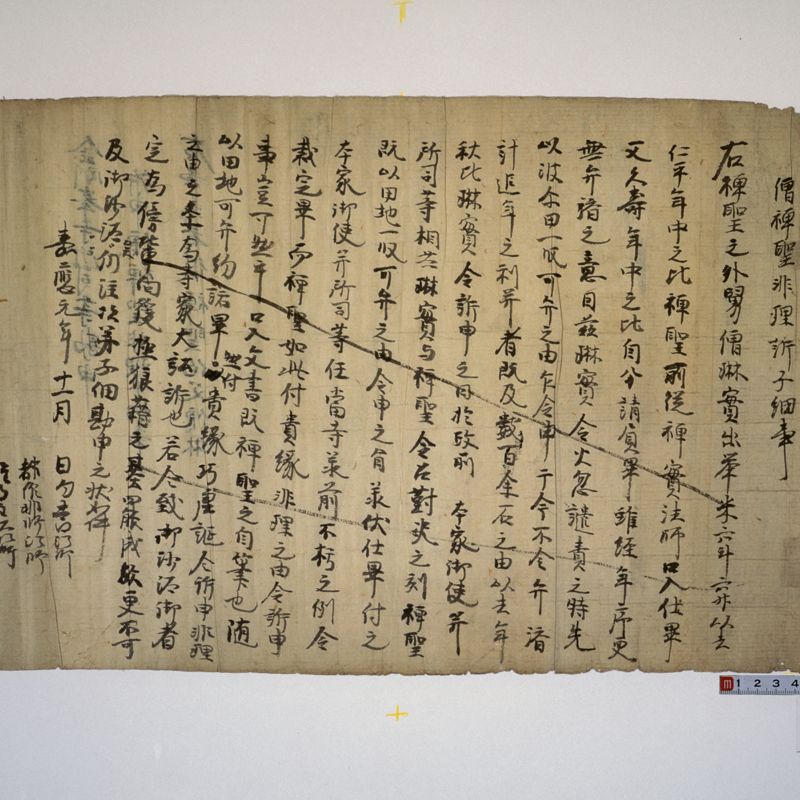 僧禅聖非理訴子細事
右禅聖之外舅僧琳實出挙米六斗六升以去
仁平年中之比禅聖前従禅實法師口入仕畢
又久寿年中之比自分請負畢雖経年序更
無弁濟之意因茲琳實令火急譴責之時先
以波尓田一段可弁之由乍令申于今不令弁濟
計近年之利弁者既及數百余石之由以去年
秋比琳實令訴申之日於政所 本家御使并
所司等相共琳實与禅聖令召對决之刻禅聖
既以田地一段可弁之由令申之旨承伏仕畢付之
本家御使并所司等任當寺承前不朽之例令
裁定畢而禅聖如此付貴縁非理之由令訴申
事豈可然乎口入文書既禅聖之自筆也随
以田地可弁約諾畢然付貴縁巧虚誕令訴申非理
之由之条為寺家大訴也若令致御沙汰御者
定為傍輩向後極狼藉之基歟成敗更不可
及御沙汰仍注次第子細勘申之状如件
嘉應元年十一月 日